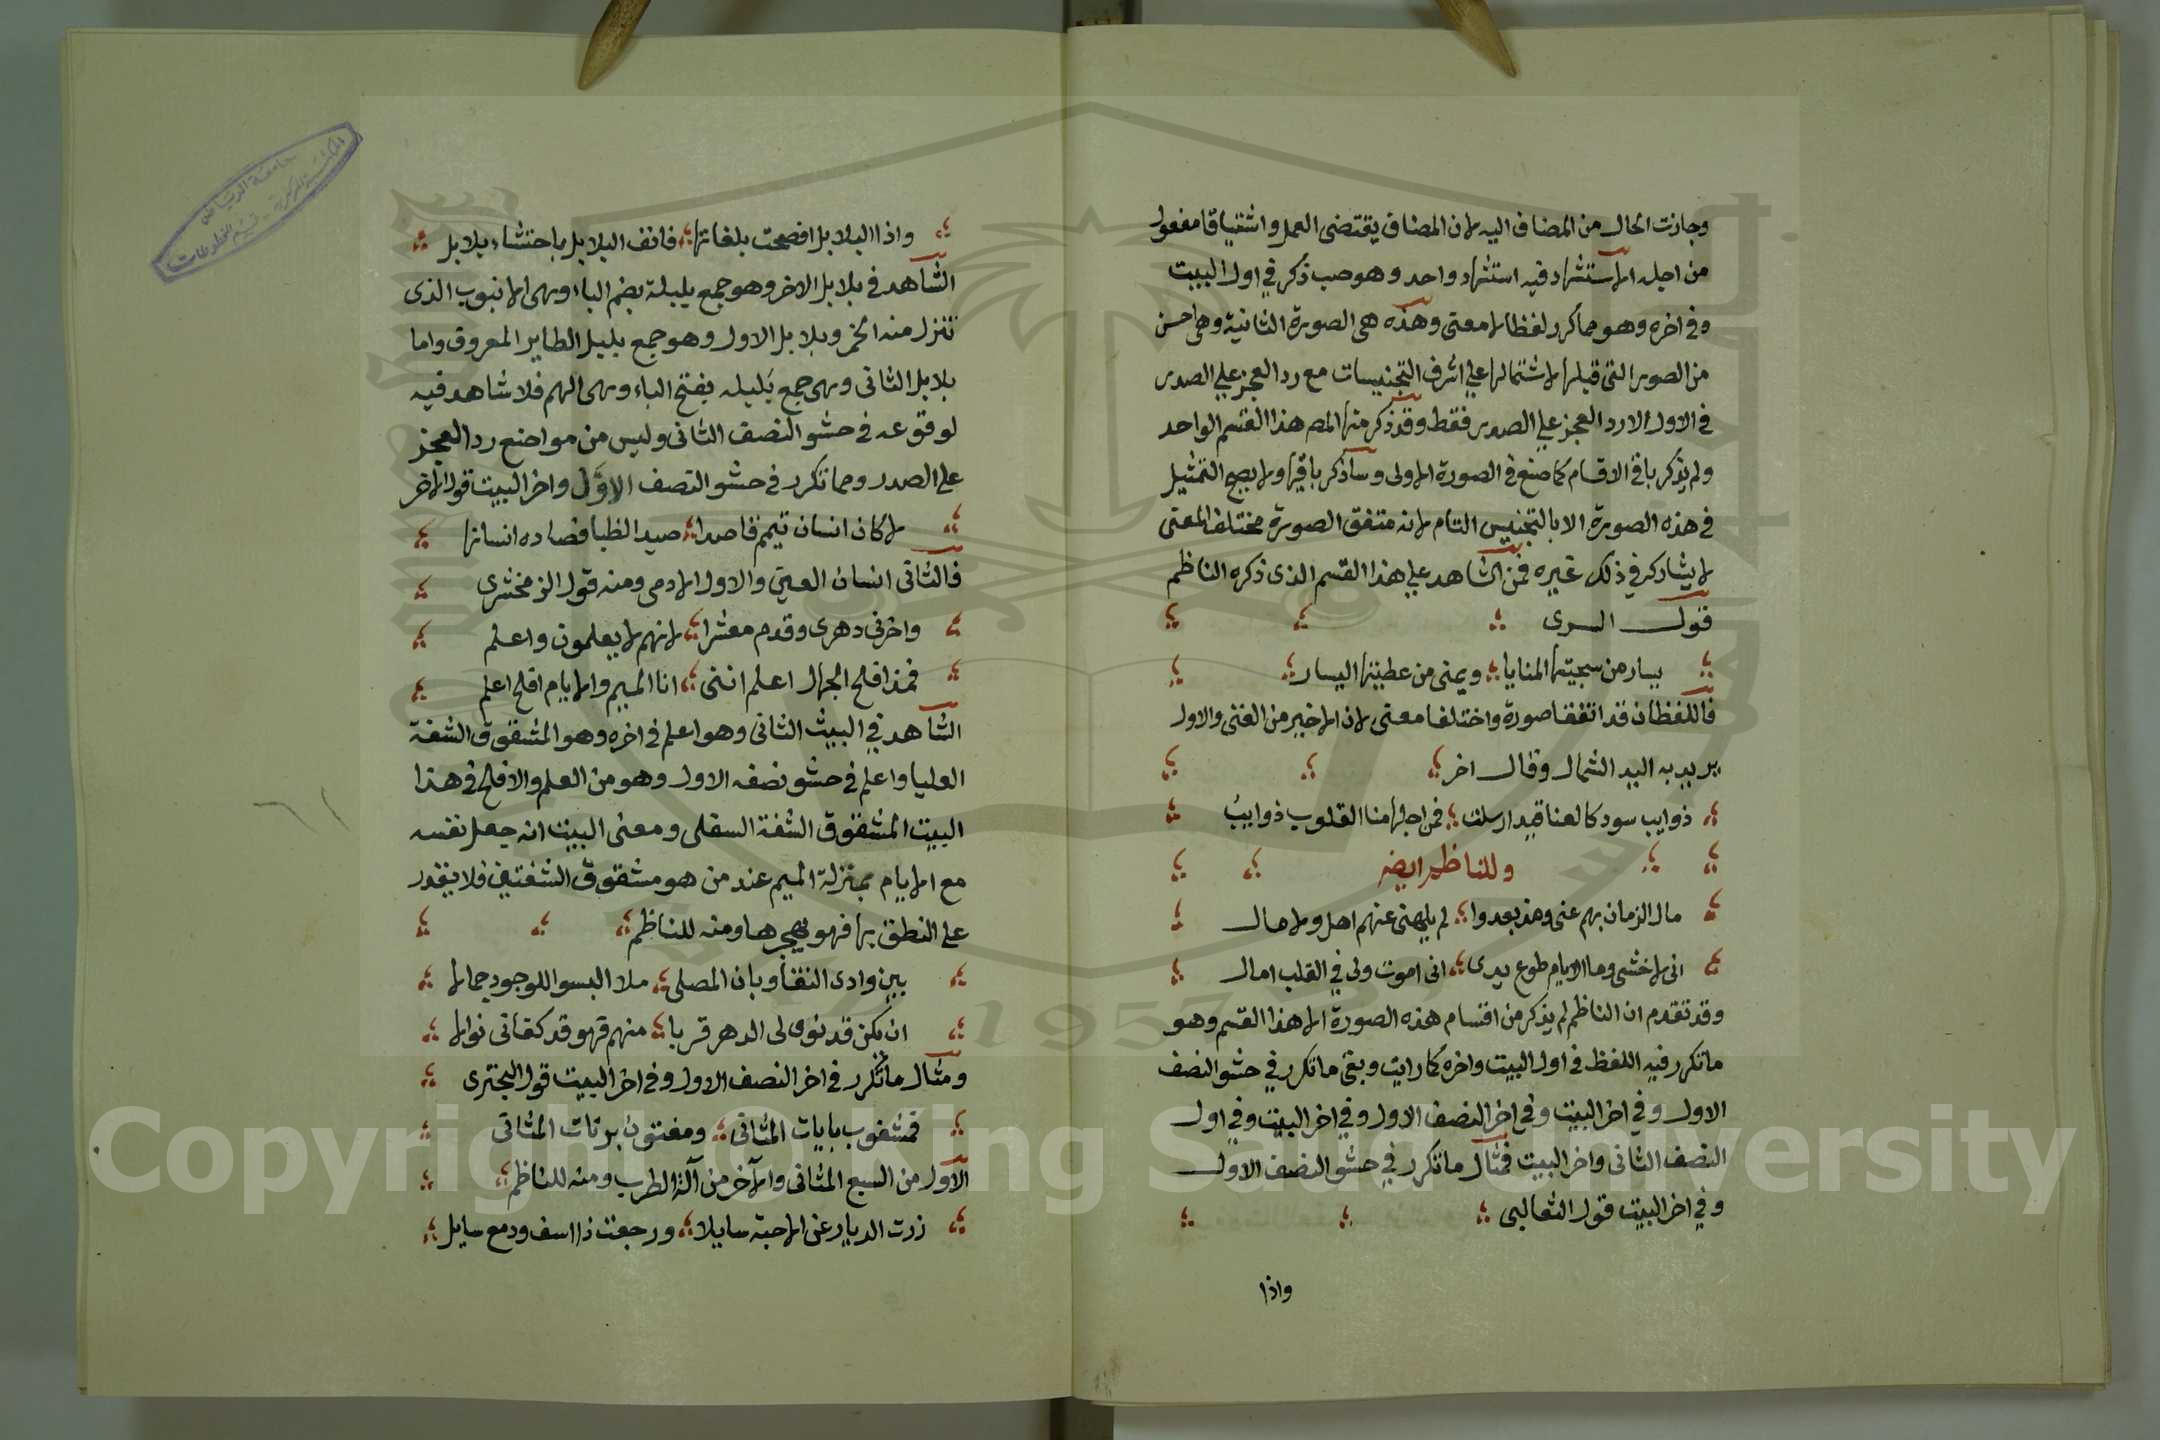 وجازت الحال من المضاف اليه لان المضاف يقتضى العمل واشتياقا مفعول
من اجله الاستشهاد فيه استشهاد واحد وهو صب ذكر في اول البيت
وفى اخره وهو مما كرر لفظا لا معنى وهذه هى الصورة الثانية وهى احسن
من الصور التى قبلها لاشتمالها على اشرف التجنيسات مع رد العجز على الصدر
في الاول الا رد العجز على الصدر فقط وقد ذكر منها المص هذا القسم الواحد
ولم يذكر باقى الاقسام كما صنع فى الصورة الاولى وساذكر باقيها ولا يصح التمثيل
فى هذه الصورة الا بالتجنيس التام لانه متفق الصورة مختلف المعنى
لا يشاركه في ذلك غيره فمن الشاهد على هذا القسم الذى ذكره الناظم
قول السرى
يسار من سجيتها المنايا ويمنى من عطيتها اليسار
فاللفظان قد اتفقا صورة واختلفا معنى لان الاخير من الغنى والاول
يريد به اليد الشمال وقال اخر
ذوايب سود كالعناقيد ارسلت فمن اجلها منا القلوب ذوايبُ
وللناظم ايضه
مال الزمان بهم عنى ومذ بعدوا لم يلهنى عنهم اهل ولا مال
انى لاخشى وما الايام طوع يدى انى اموت ولى في القلب امال
وقد تقدم ان الناظم لم يذكر من اقسام هذه الصورة الا هذا القسم وهو
ما تكرر فيه اللفظ فى اول البيت واخره كما رايت وبقى ما تكرر في حشو النصف
الاول وفي اخر البيت وفي اخر النصف الاول وفي اخر البيت وفي اول
النصف الثانى واخر البيت فمثال ما تكرر في حشو النصف الاول
وفي اخر البيت قول الثعالبى
واذا
واذا البلابل افصحت بلغاتها فانف البلابل باحتساء بلابل
الشاهد فى بلابل الاخر وهو جمع بلبلة بضم الباء وهى الانبوب الذى
تنزل منه الخمر وبلابل الاول وهو جمع بلبل الطاير المعروف واما
بلابل الثانى وهى جمع بَلبله بفتح الباء وهى الهم فلا شاهد فيه
لوقوعه فى حشو النصف الثانى وليس من مواضع رد العجز
على الصدر ومما تكرر فى حشو النصف الاوّل واخر البيت قول الاخر
لا كان انسان تيمم قاصدا صيد الظبا فصاده انسانها
فالثانى انسان العين والاول الادمى ومنه قول الزمخشرى
واخرنى دهرى وقدم معشرا لانهم لا يعلمون واعلم
فمذ افلح الجهال اعلم اننى انا الميم والايام افلح اعلم
الشاهد في البيت الثانى وهو اعلم فى اخره وهو المشقوق الشفة
العليا واعلم فى حشو نصفه الاول وهو من العلم والافلح فى هذا
البيت المشقوق الشفة السفلى ومعنى البيت انه جعل نفسه
مع الايام بمنزلة الميم عند من هو مشقوق الشفتين فلا يقدر
على النطق بها فهو يهجرها ومنه للناظم
بين وادى النقا وبان المصلى ملا البسوا الوجود جمالا
ان يكن قد نوى لى الدهر قربا منهم فهو قد كفانى نوالا
ومثال ما تكرر فى اخر النصف الاول وفى اخر البيت قول البحترى
فمشغوب بايات المثانى ومفتون برنات المثانى
الاول من السبع المثانى والآخر من آلة الطرب ومنه للناظم
زرت الديار عن الاحبة سايلا ورجعت ذا اسف ودمع سايل
جامعة الرياض
Copyright © King Saud University
1957